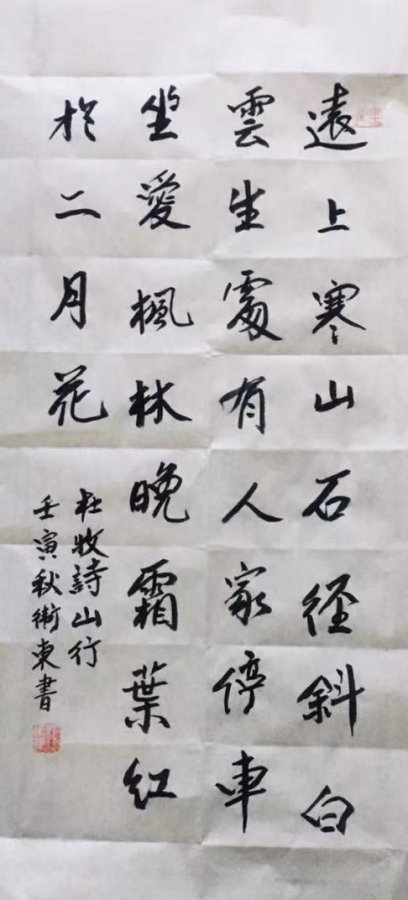 遠上寒山石徑斜白
雲生處有人家停車
坐愛楓林晚霜葉紅
於二月花
杜牧詩山行
壬寅秋衛東書